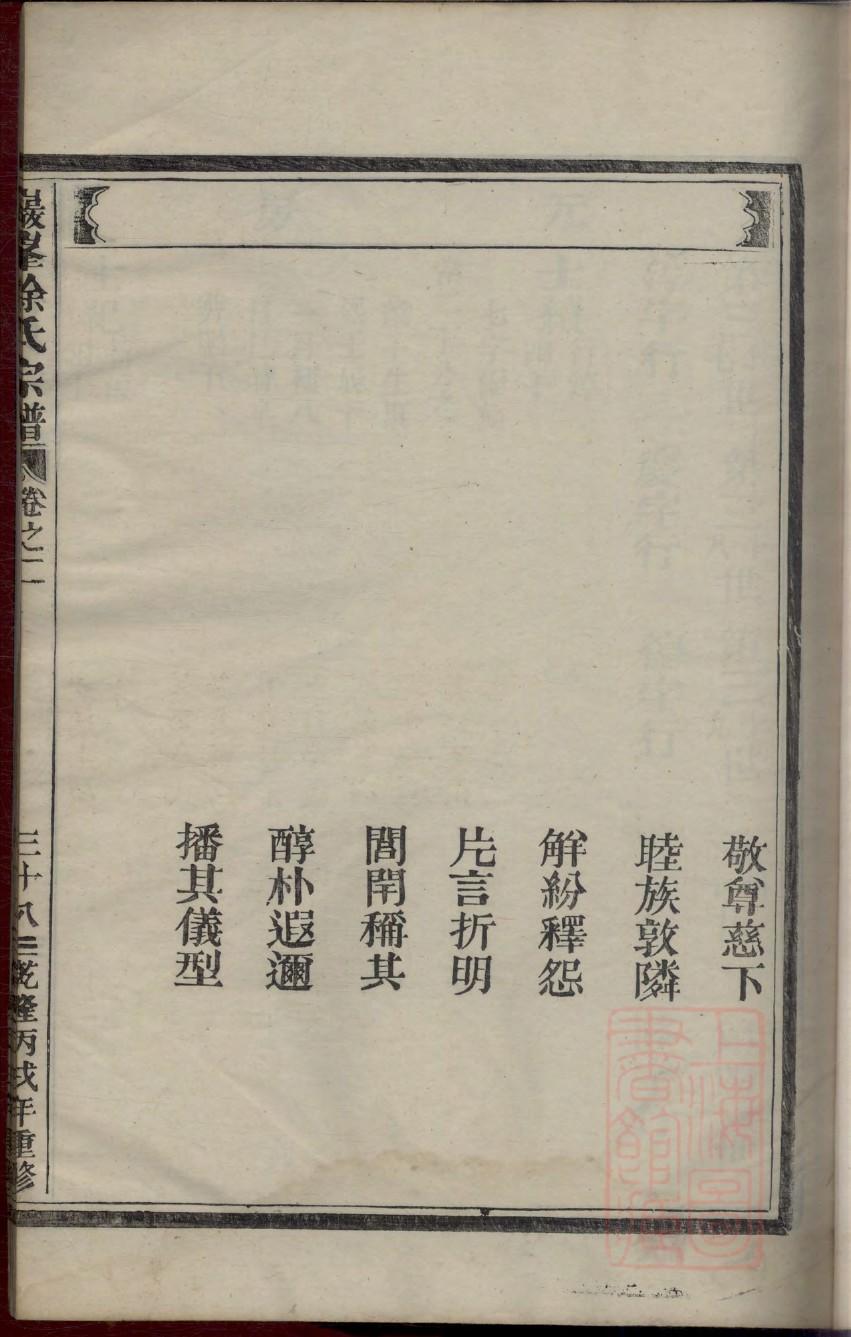 敬尊慈下
睦族敦隣
觧紛釋怨
片言折明
閭閈稱其
醇朴遐邇
播其儀型
巖峯徐氏宗譜
卷之二
三十八
乾隆丙戌年重修
上海圖書館藏